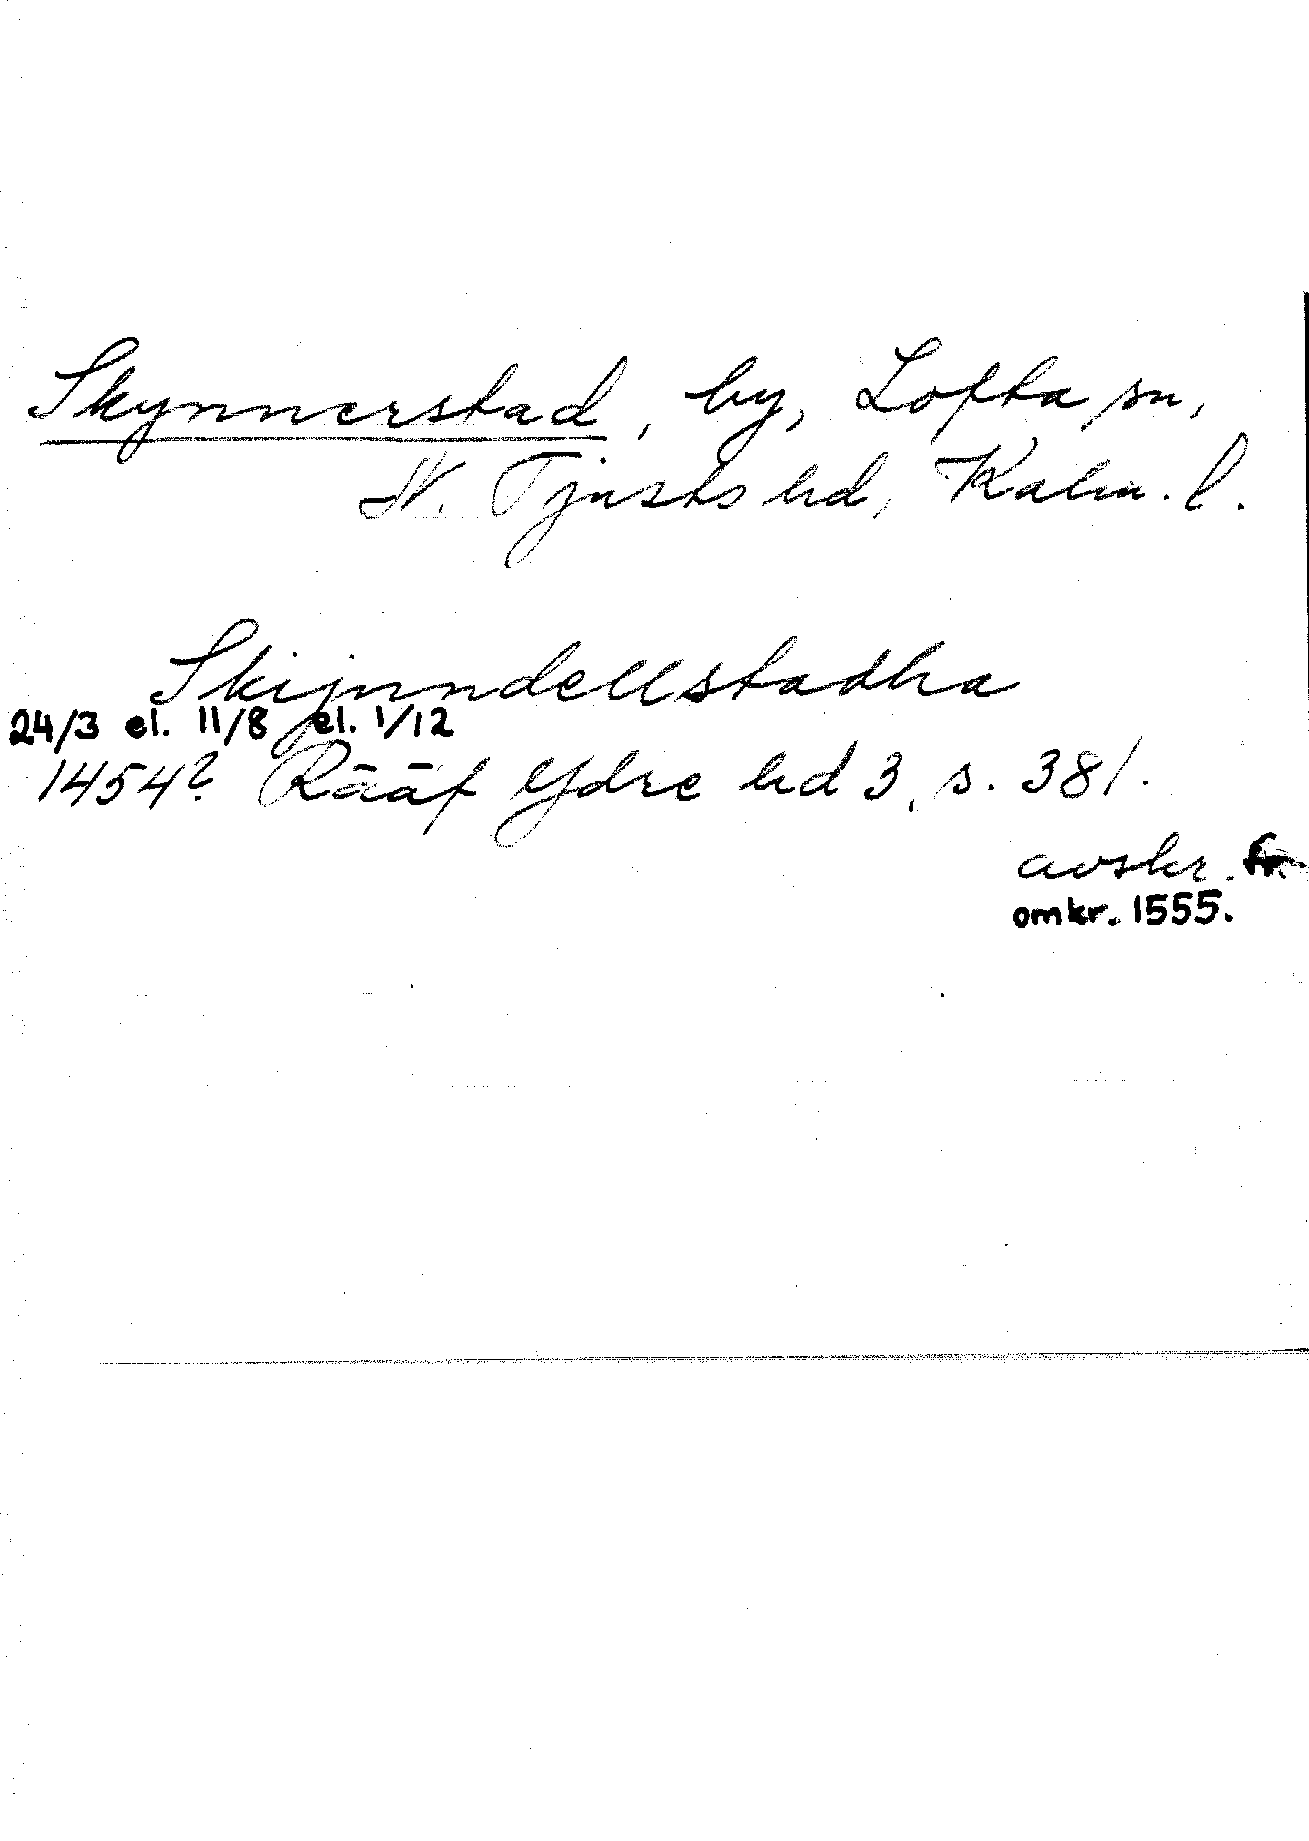 Skynnerstad, by, Lofta sn,
N. Tjusts hd, Kalm. l.
Skijnndellstadha
24/3 el. 11/8 el. 1/12
1454? Rääf Ydre hd 3, s. 381.
avskr. fr.
omkr. 1555.